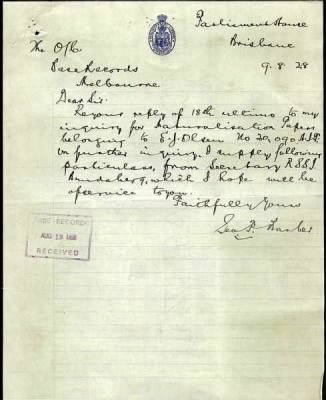 Parliament House
Brisbane
9.8.28
The O/c
Base Records
Melbourne
Dear Sir.
Re your reply of 18th ultimo to my
inquiry for Naturalisation Papers
belonging to E.J. Olsen No 20,090 A.I.F.
on further inquiry I supply following
particulars, from Secretary RSSI
Bundaberg, which I hope will be
of service to you.
Faithfully Yours
Geo P. Barber
BASE RECORDS
AUG 13
RECEIVED